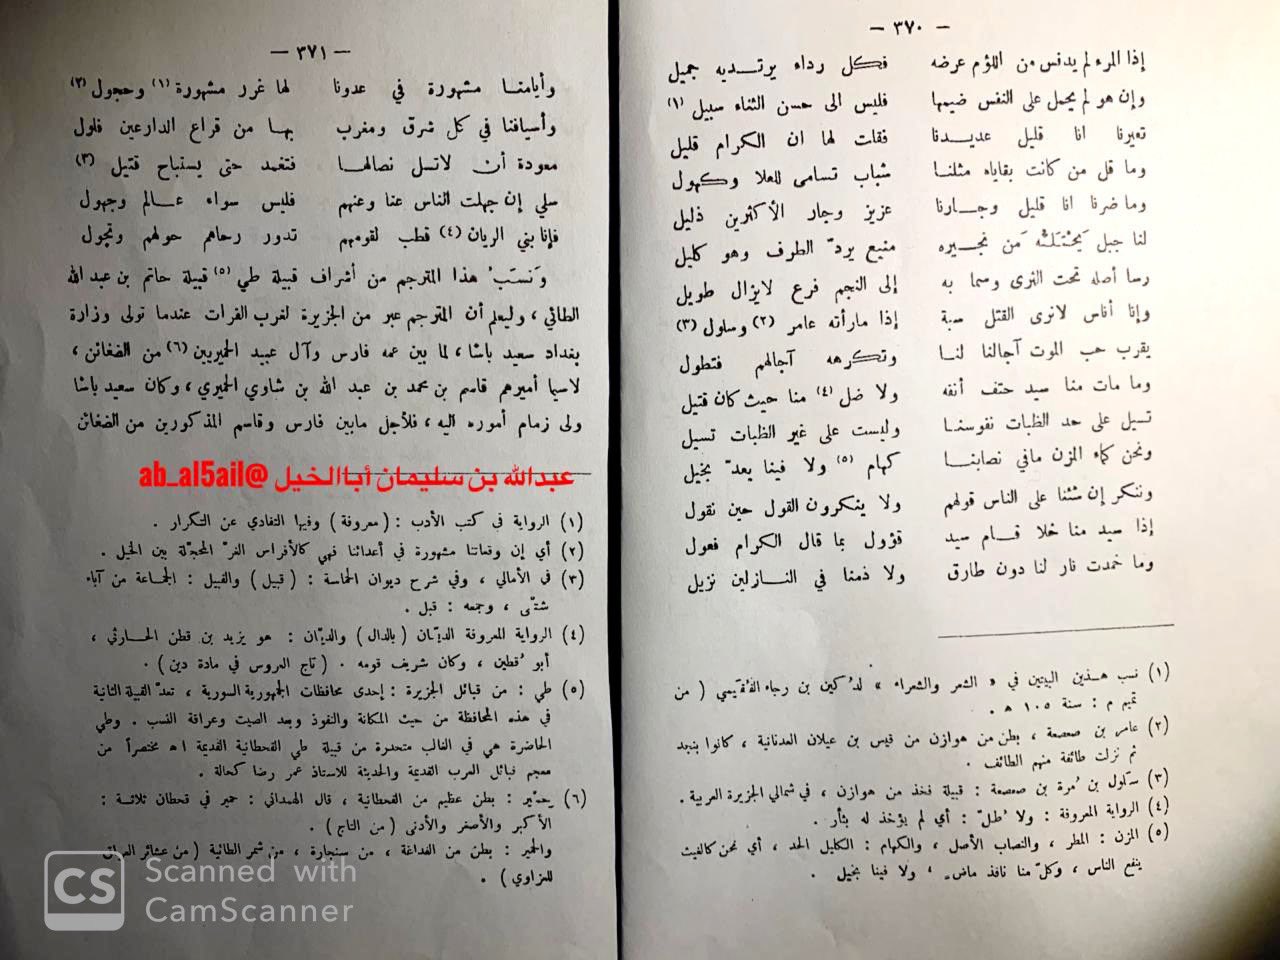 — ٣٧٠ —
إذا المرء لم يدنس من اللؤم عرضه فكل رداء يرتـديه جميل
وإن هو لم يحمل على النفس ضيمها فليس الى حسن الثناء سبيل (١)
تعيرنا انا قليل عديدنا فقلت لها ان الكرام قليل
وما قل من كانت بقاياه مثلنا شباب تسامى للعلا وكهول
وما ضرنا انا قليل وجارنا عزيز وجار الأكثرين ذليل
لنا جبل يَحْتَلُّه مَن نجيره منيع يردّ الطرف وهو كليل
رسا أصله تحت الثرى وسما به إلى النجم فرع لايزال طويل
وإنا أناس لانرى القتل سبة إذا مارأته عامر (٢) وسلول (٣)
يقرب حب الموت آجالنا لنا وتكرهه آجالهم فتطول
وما مات منا سيد حتف أنفه ولا ضل (٤) منا حيث كان قتيل
تسيل على حد الظبات نفوسنا وليست على غير الظبات تسيل
ونحن كماء المزن مافي نصابنا كهام (٥) ولا فينا يعدّ بخيل
وننكر إن شئنا على الناس قولهم ولا ينكرون القول حين نقول
إذا سيد منا خلا قام سيد قؤول بما قال الكرام فعول
وما خمدت نار لنا دون طارق ولا ذمنا في النازلين نزيل
(١) نسب هذين البيتين في « الشعر والشعراء » لدُكين بن رجاء الفُقَيمي ( من
تميم م : سنة ١٠٥ ه .
(٢) عامر بن صعصعة ، بطن من هوازن من قيس بن عيلان العدنانية ، كانوا بنجد
ثم نزلت طائفة منهم الطائف .
(٣) سَلول بن مُرة بن صعصعة : قبيلة فخذ من هوازن ، في شمالي الجزيرة العربية .
(٤) الرواية المعروفة : ولا ُطلّ : أي لم يؤخذ له بثأر .
(٥) المزن : المطر ، والنصاب الأصل ، والكهام : الكليل الحد ، أي نحن كالغيث
ينفع الناس ، وكلّ منا نافذ ماض ، ولا فينا بخيل .
— ٣٧١ —
وأيامنا مشهورة في عدونا لها غرر مشهورة (١) وحجول (٢)
وأسيافنا في كل شرق ومغرب بها من قراع الدارعين فلول
معودة أن لاتسل نصالها فتغمد حتى يستباح قتيل (٣)
سلي إن جهلت الناس عنا وعنهم فليس سواء عالم وجهول
فإنا بني الريان (٤) قطب لقومهم تدور رحاهم حولهم وتجول
وَنسَبُ هذا المترجم من أشراف قبيلة طي (٥) قبيلة حاتم بن عبد الله
الطائي ، وليعلم أن المترجم عبر من الجزيرة لغرب الفرات عندما تولى وزارة
بغداد سعيد باشا ، لما بين عمه فارس وآل عبيد الحميريين (٦) من الضغائن ،
لاسيما أميرهم قاسم بن محمد بن عبد الله بن شاوي الحميري ، وكان سعيد باشا
ولى زمام أموره اليه ، فلأجل مابين فارس وقاسم المذكورين من الضغائن
عبدالله بن سليمان أباالخيل @ab_al5ail
(١) الرواية في كتب الأدب : ( معروفة ) وفيها التفادي عن التكرار .
(٢) أي إن وقعاتنا مشهورة في أعدائنا فهي كالأفراس الغرّ المحجّلة بين الخيل .
(٣) في الأمالي ، وفي شرح ديوان الحماسة : ( قبيل ) والقبيل : الجماعة من آباء
شتّى ، وجمعه : قبل .
(٤) الرواية المعروفة الديّان ( بالدال ) والديّان : هو يزيد بن قطن الحارثي ،
أبو ُقطين ، وكان شريف قومه . ( تاج العروس في مادة دين ) .
(٥) طي : من قبائل الجزيرة : إحدى محافظات الجمهورية السورية ، تعدّ القبيلة الثانية
في هذه المحافظة من حيث المكانة والنفوذ وبعد الصيت وعراقة النسب . وطي
الحاضرة هي في الغالب متحدرة من قبيلة طي القحطانية القديمة اه مختصراً من
معجم قبائل العرب القديمة والحديثة للاستاذ عمر رضا كحالة .
(٦) حِمْير : بطن عظيم من القحطانية ، قال الهمداني : حمير في قحطان ثلاثة :
الأكبر والأصغر والأدنى ( من التاج ) .
والحمير : بطن من الفداغة ، من سنجارة ، من شمر الطائية ( من عشائر العراق
للعزاوي ) .
CS Scanned with
CamScanner